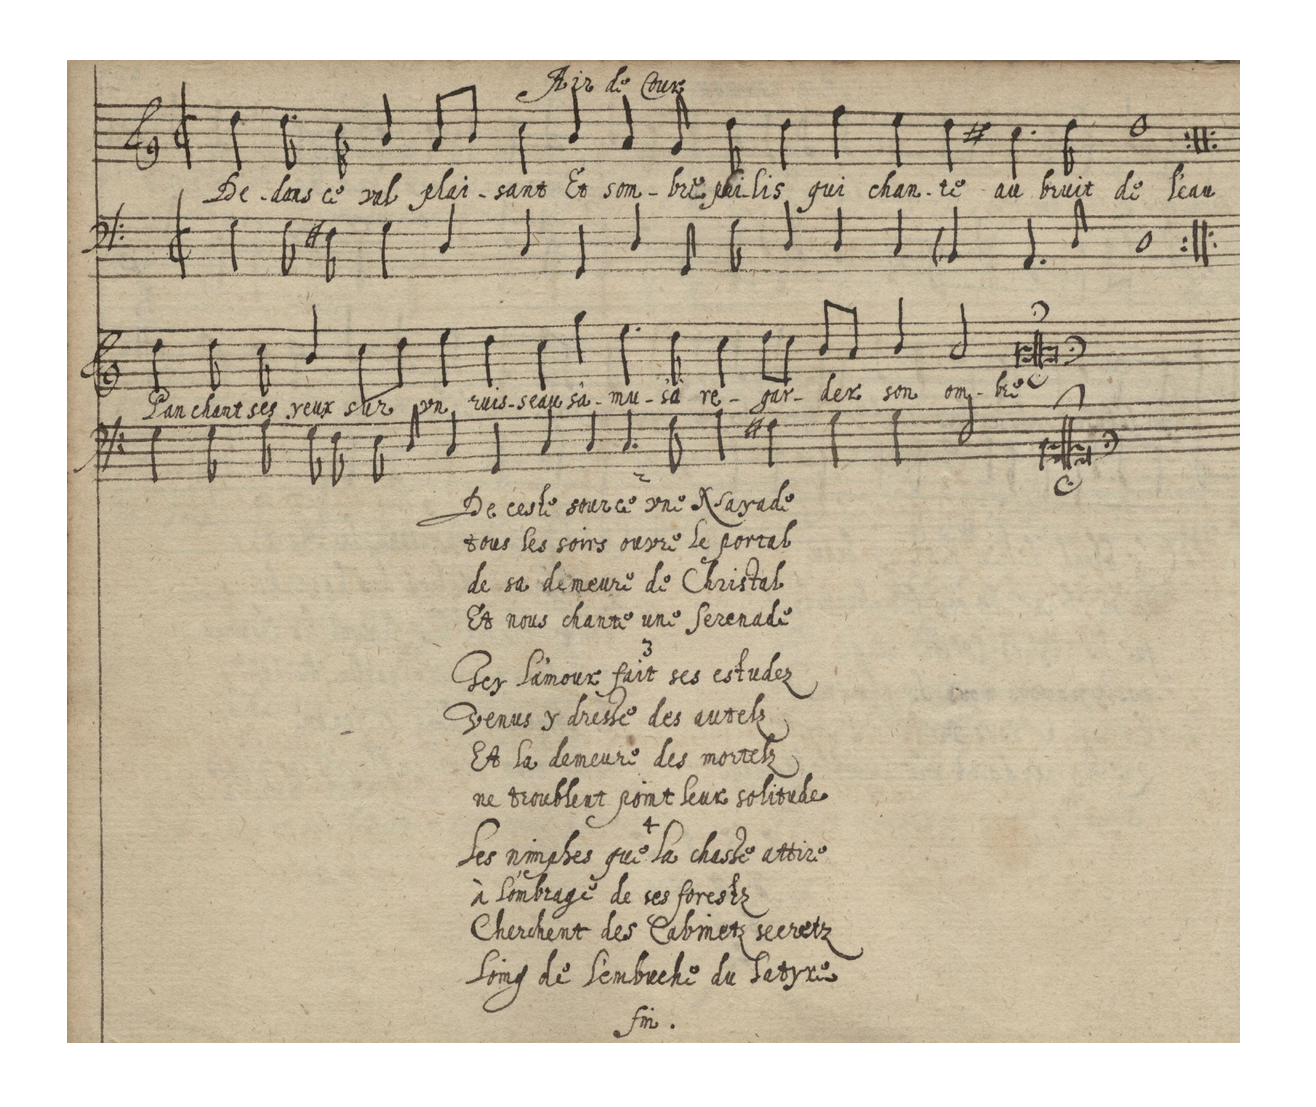 Air de Cour
De-dans ce val plai-sant Et som-bre philis qui chan-te au bruit de l'eau
Panchant ses yeux sur vn ruis-seau sa-mu-sa re-gar-der son om-bre
2
De ceste source vne Nayade
tous les soirs ouvre le portal
de sa demeure de Christal
Et nous chante une serenade
3
Icy l'amour fait ses estudez
Venus y dresse des autelz
Et la demeure des mortelz
ne troublent point leur solitude
4
Les nimphes que la chasse attire
à l'ombrage de ses forestz
Cherchent des Cabinetz secretz
Loing de l'embuche du satyre
fin .